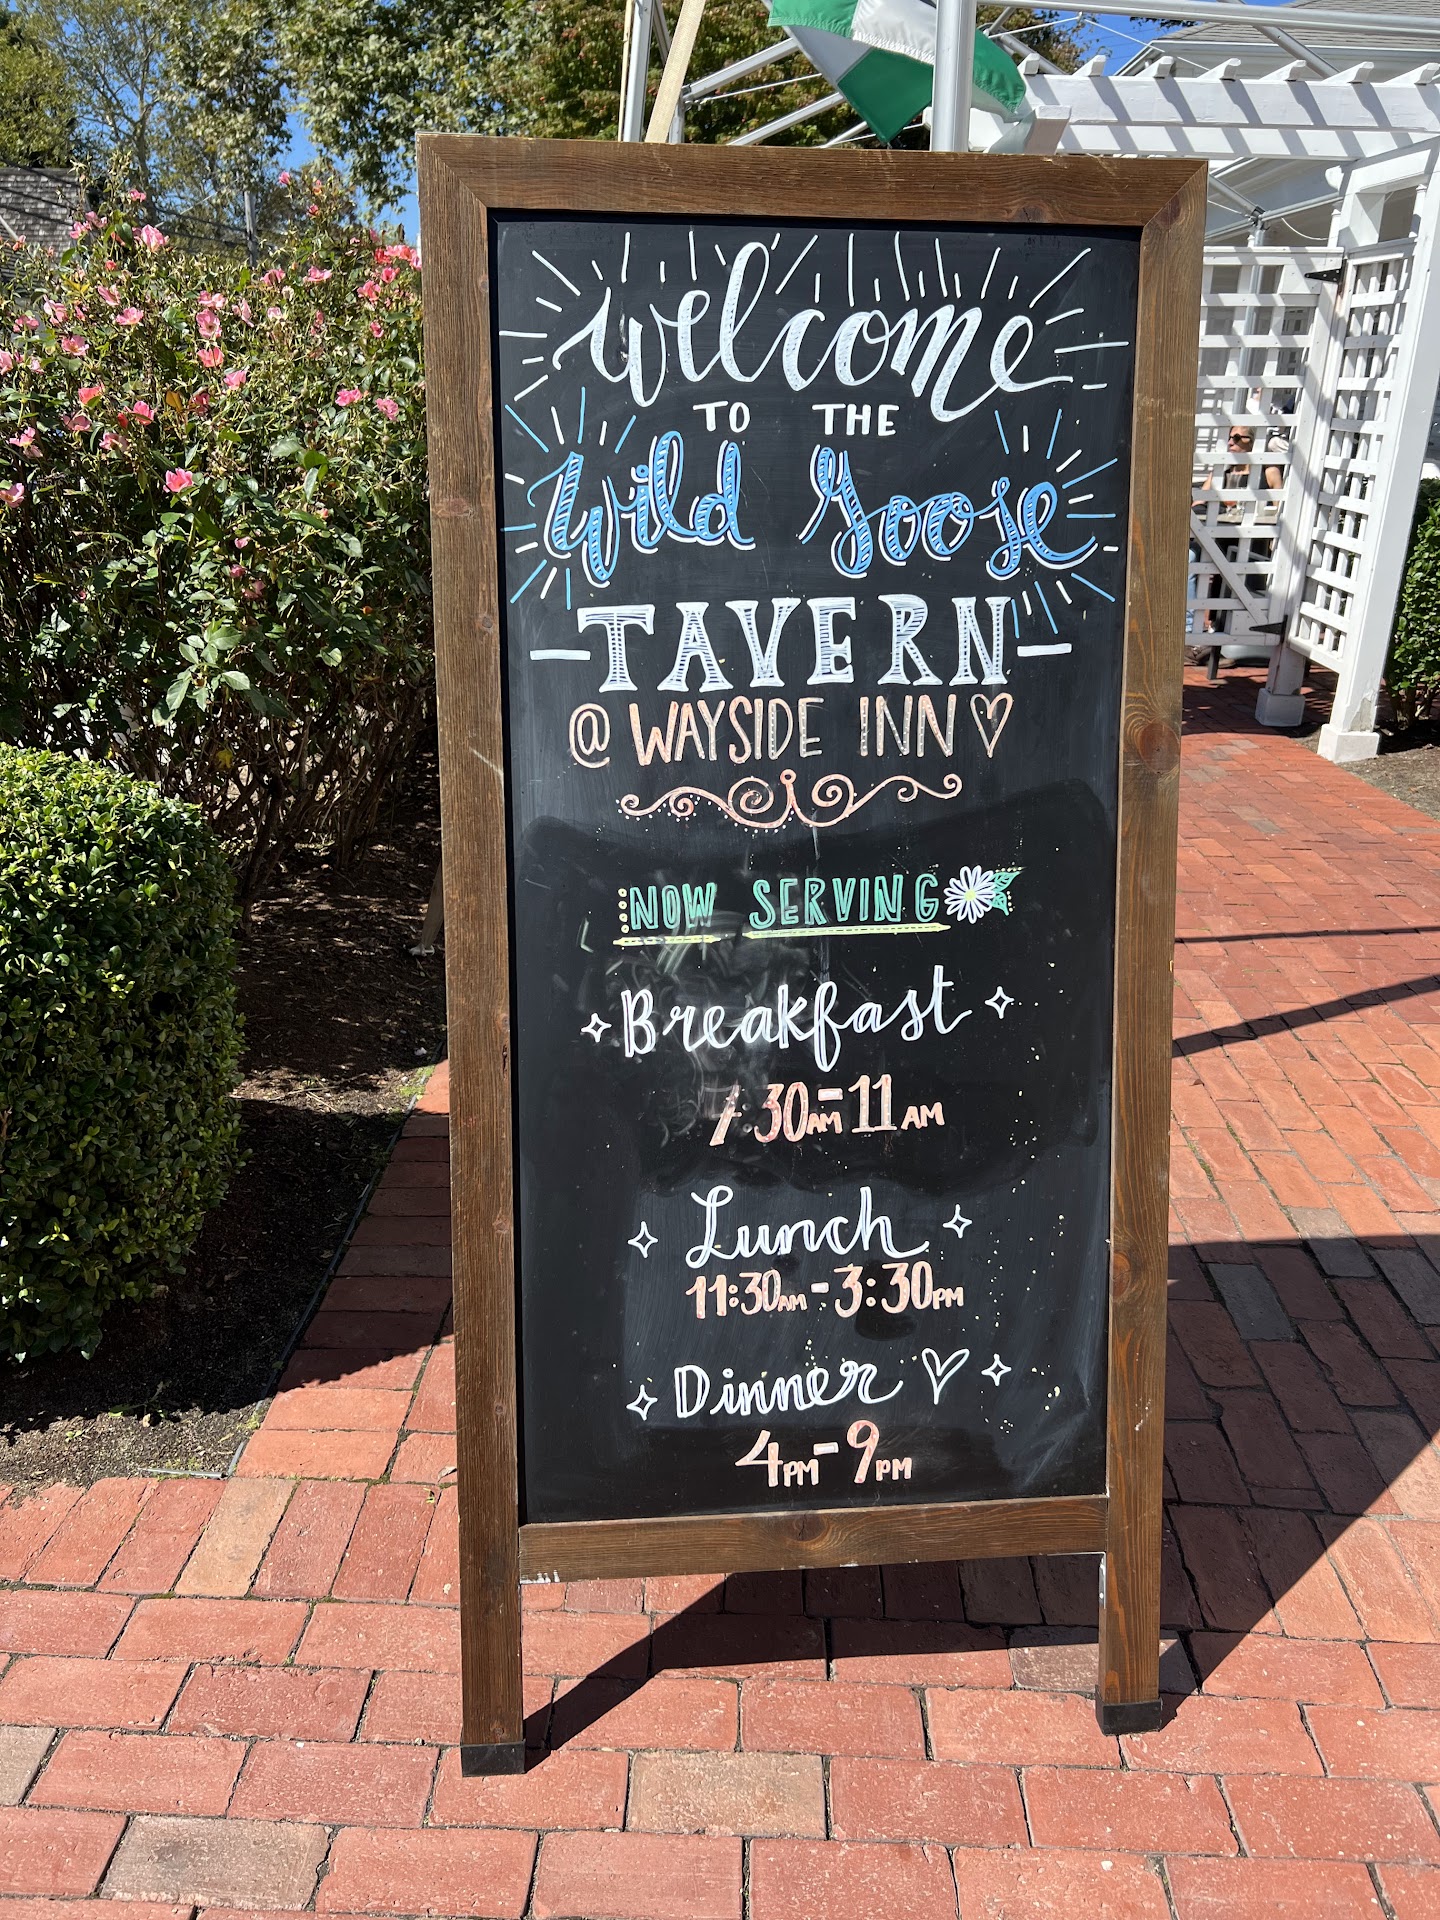 welcome
TO THE
Wild Goose
-TAVERN-
@ WAYSIDE INN
NOW SERVING
Breakfast
7:30AM-11AM
Lunch
11:30AM-3:30PM
Dinner
4PM-9PM